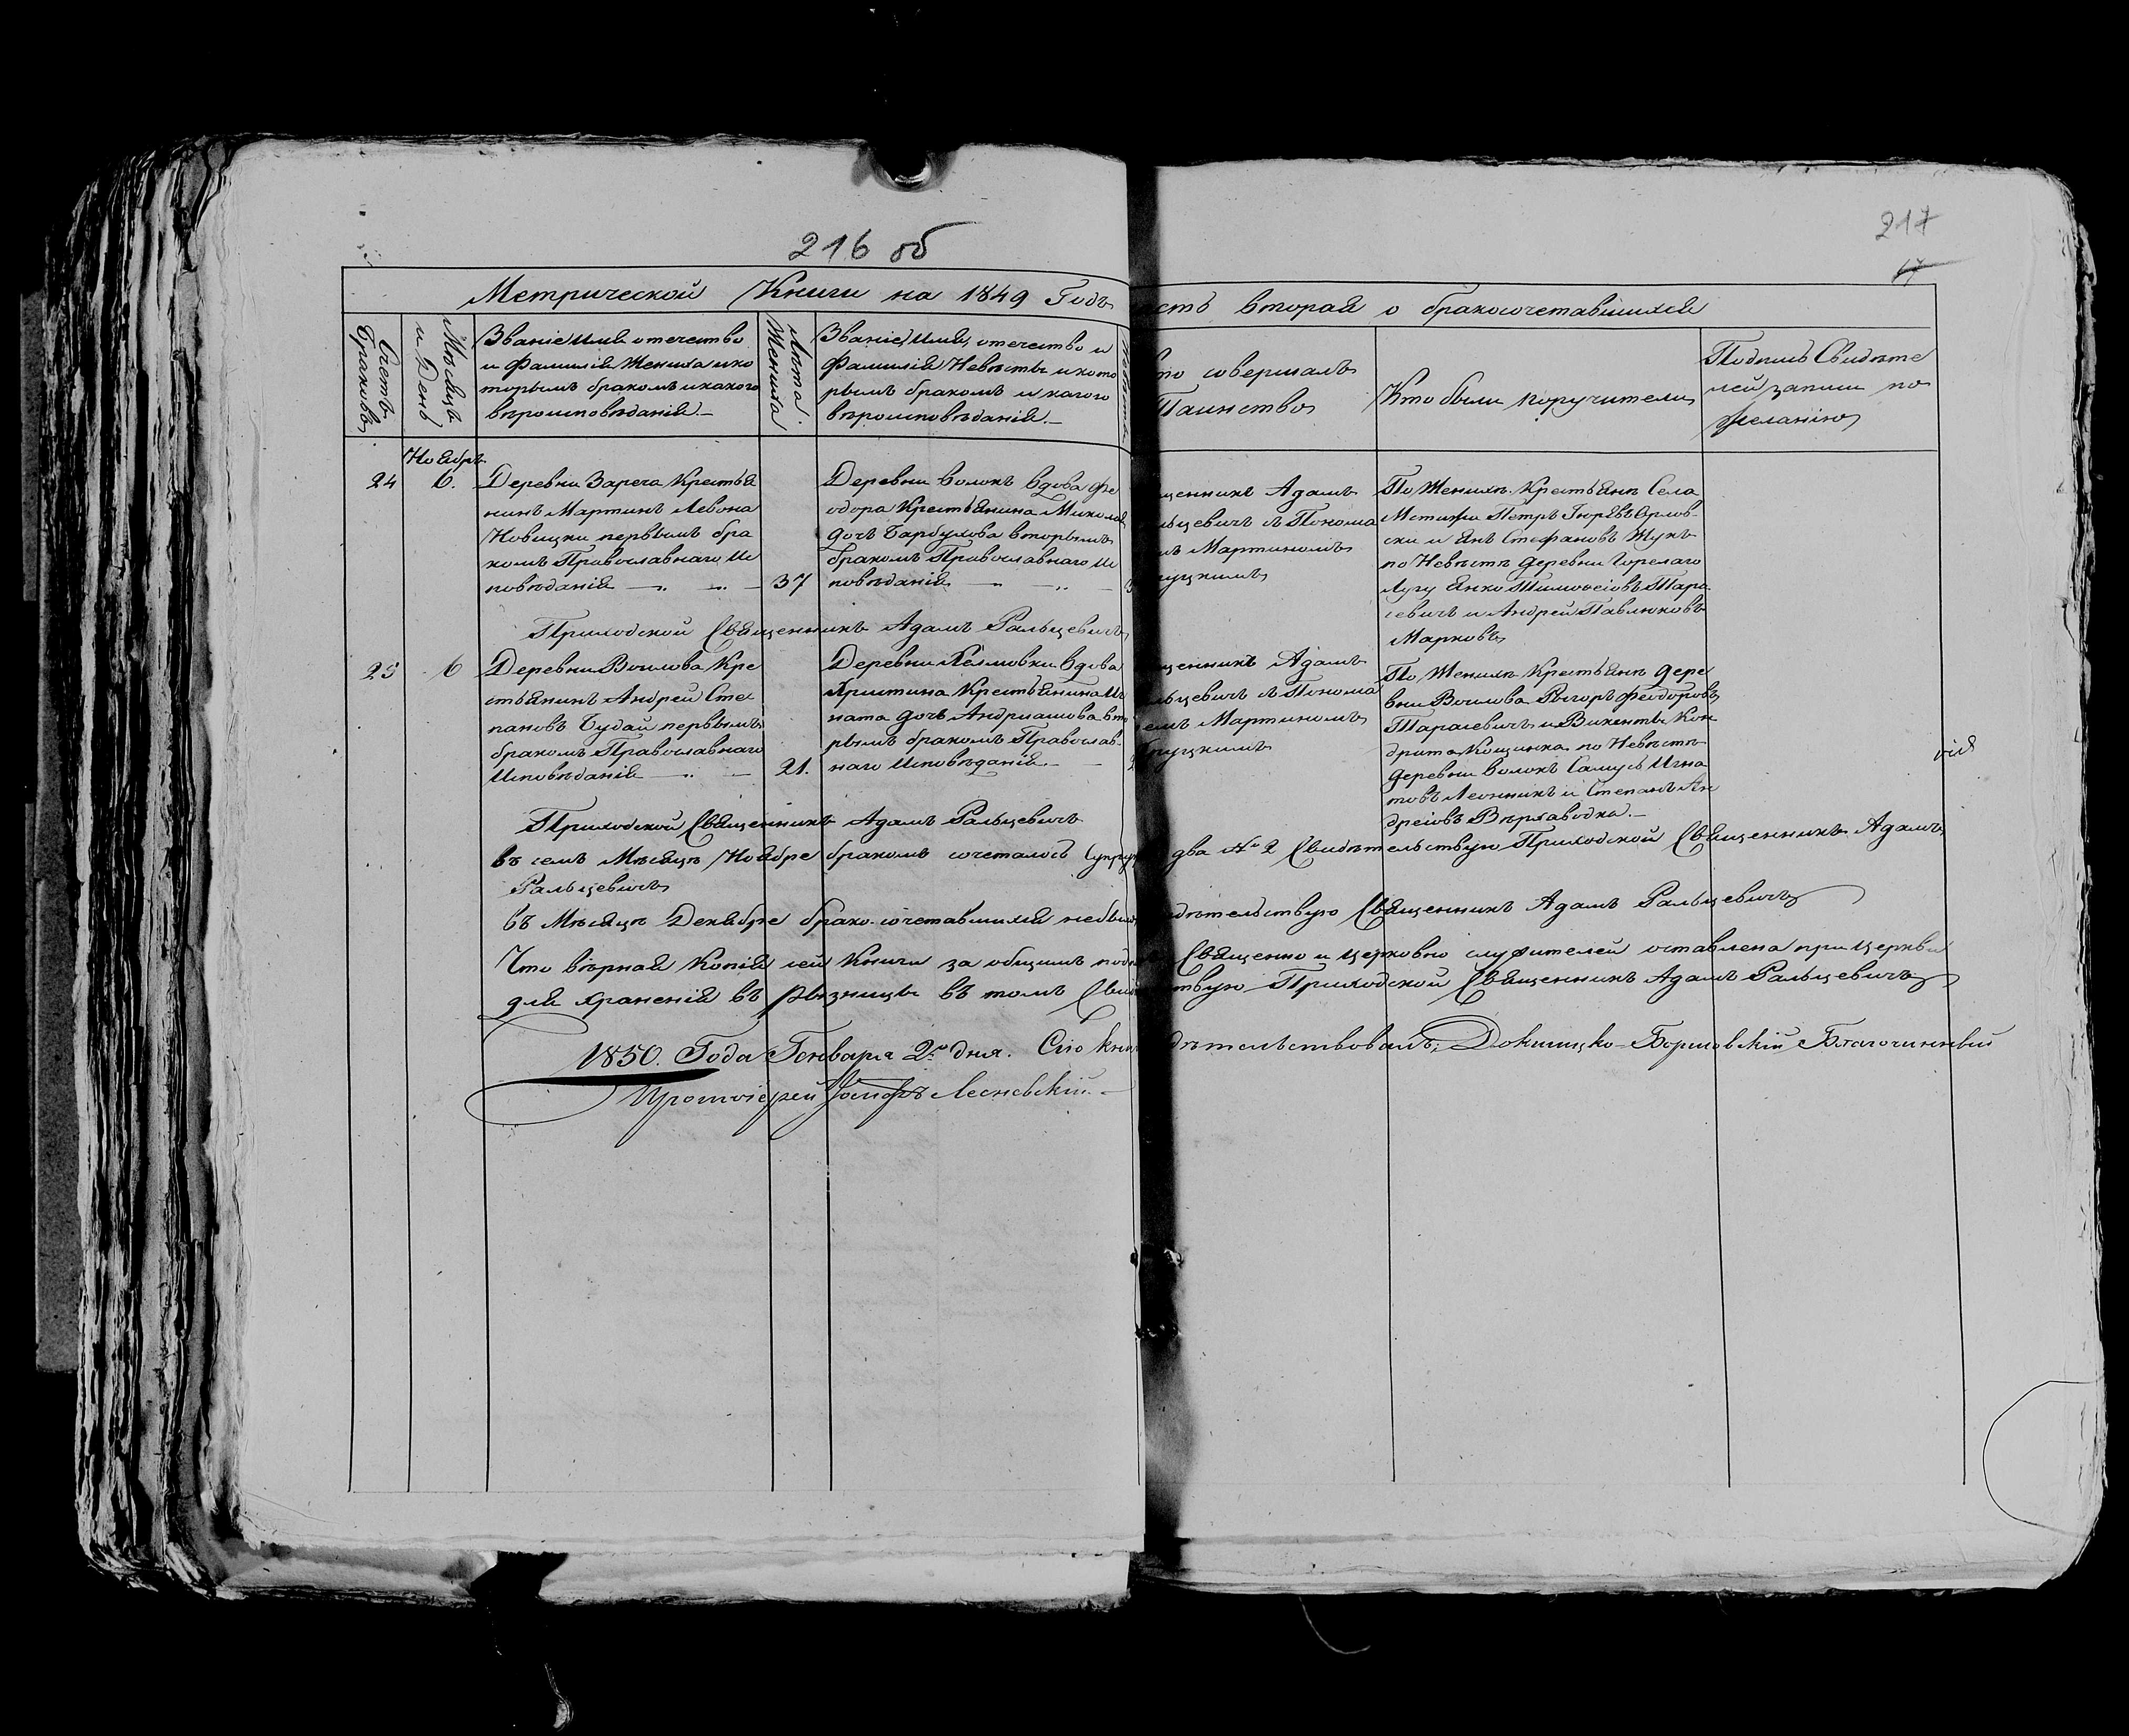 216 об
217
17
Метрической Книги на 1849 Годъ
сть вторая о бракосочетавшихся
Счетъ Браковъ
Мѣсяцъ и День
Званіе Имя отечество
и Фамилія Жениха и ко
торымъ бракомъ и какого
вѣроисповѣданія. —
Лѣта Жениха.
Званіе, Имя, отечество и
Фамилія Невѣсты и кото
рымъ бракомъ и какого
вѣроисповѣданія. —
то совершалъ
Таинство
Кто были поручители
Подпись Свидѣте
лей записи по
желанію
Ноябрь
24
6.
Деревни Зареча Крестья
нинъ Мартинъ Левона
Новицки первымъ бра
комъ Православнаго Ис
повѣданія — „ — „ —
37
Деревни Волокъ вдова Фе
одора Крестьянина Миколая
дочь Барбулова вторымъ
бракомъ Православнаго Ис
повѣданія — „ — „ —
щенникъ Адамъ
льцевичъ съ Понома
мъ Мартиномъ
уцкимъ
По Женихѣ Крестьянѣ Села
Мстижи Петръ Гюрьевъ Орлов-
ски и Янъ Стефановъ Жукъ
по Невѣстѣ деревни Горелаго
Лугу Янко Тимоѳеіовъ Тара-
севичъ и Андрей Павлюковъ
Марковъ
Приходской Священникъ Адамъ Ральцевичъ
25
6
Деревни Воилова Кре
стьянинъ Андрей Сте
пановъ Будай первымъ
бракомъ Православнаго
Исповѣданія — „ —
21.
Деревни вдова
Христина Крестьянина Иг
ната дочь Андриашова вто
рымъ бракомъ Православ-
наго Исповѣданія. —
щенникъ Адамъ
льцевичъ съ Понома
емъ Мартиномъ
руцкимъ
По Женихѣ Крестьянѣ дере
вни Воилова Рыгоръ Феодоровъ
Тарасевичъ и Викенты Кон
драта по Невѣстѣ
деревни Волокъ Самусь Игна
товъ Леонникъ и Степанъ Ан
дреіовъ
Приходской Священникъ Адамъ Ральцевичъ
въ семъ Мѣсяцѣ Ноябре бракомъ сочеталось Супру два № 2 Свидѣтельствую Приходской Священникъ Адамъ
Ральцевичъ
въ Мѣсяцѣ Декабре брако-сочетавшихся небыло дѣтельствую Священникъ Адамъ Ральцевичъ
Что вѣрная Копія сей Книги за общимъ подп Священно и церковно служителей оставлена при Церкви
для храненія въ рызницы въ томъ Свид твую Приходской Священникъ Адамъ Ральцевичъ
1850. Года Генваря 2го дня. Сію кни дѣтельствовалъ: Докшицко-Борисовскій Благочинный
Протоіерей Іосифъ Лесневскій. —